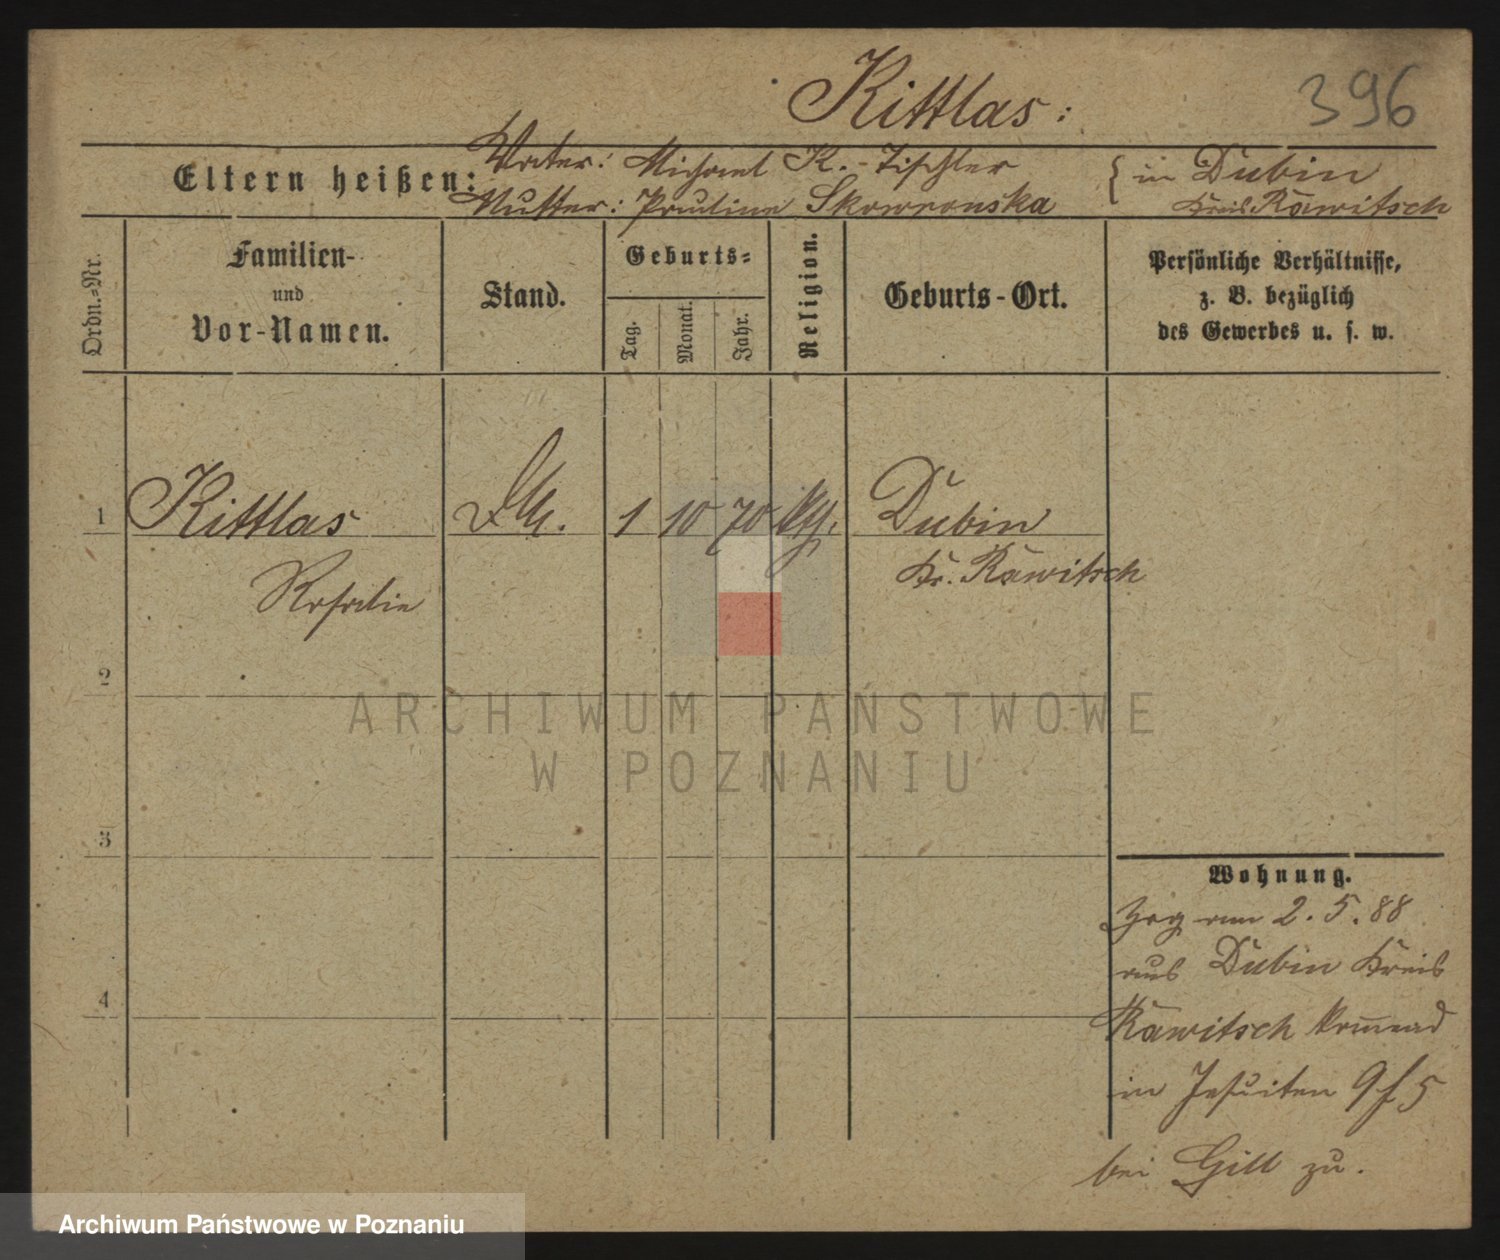 Kittlas:
396
Eltern heißen:
Vater: Michael K. - Tischler
Mutter: Pauline Skowronska
{ in Dubin
Kreis Rawitsch
Ordn.-Nr.
Familien-
und
Vor-Namen.
Stand.
Geburts-
Tag.
Monat.
Jahr.
Religion.
Geburts-Ort.
Persönliche Verhältnisse,
z. B. bezüglich
des Gewerbes u. s. w.
1 Kittlas 1 10 70 Dubin
Rosalie
Kr. Rawitsch
2
3
4
Wohnung.
Zog am 2. 5. 88
aus Dubin Kreis
Rawitsch kommend
in Jesuiten
bei Gill zu.
ARCHIWUM PAŃSTWOWE
W POZNANIU
Archiwum Państwowe w Poznaniu